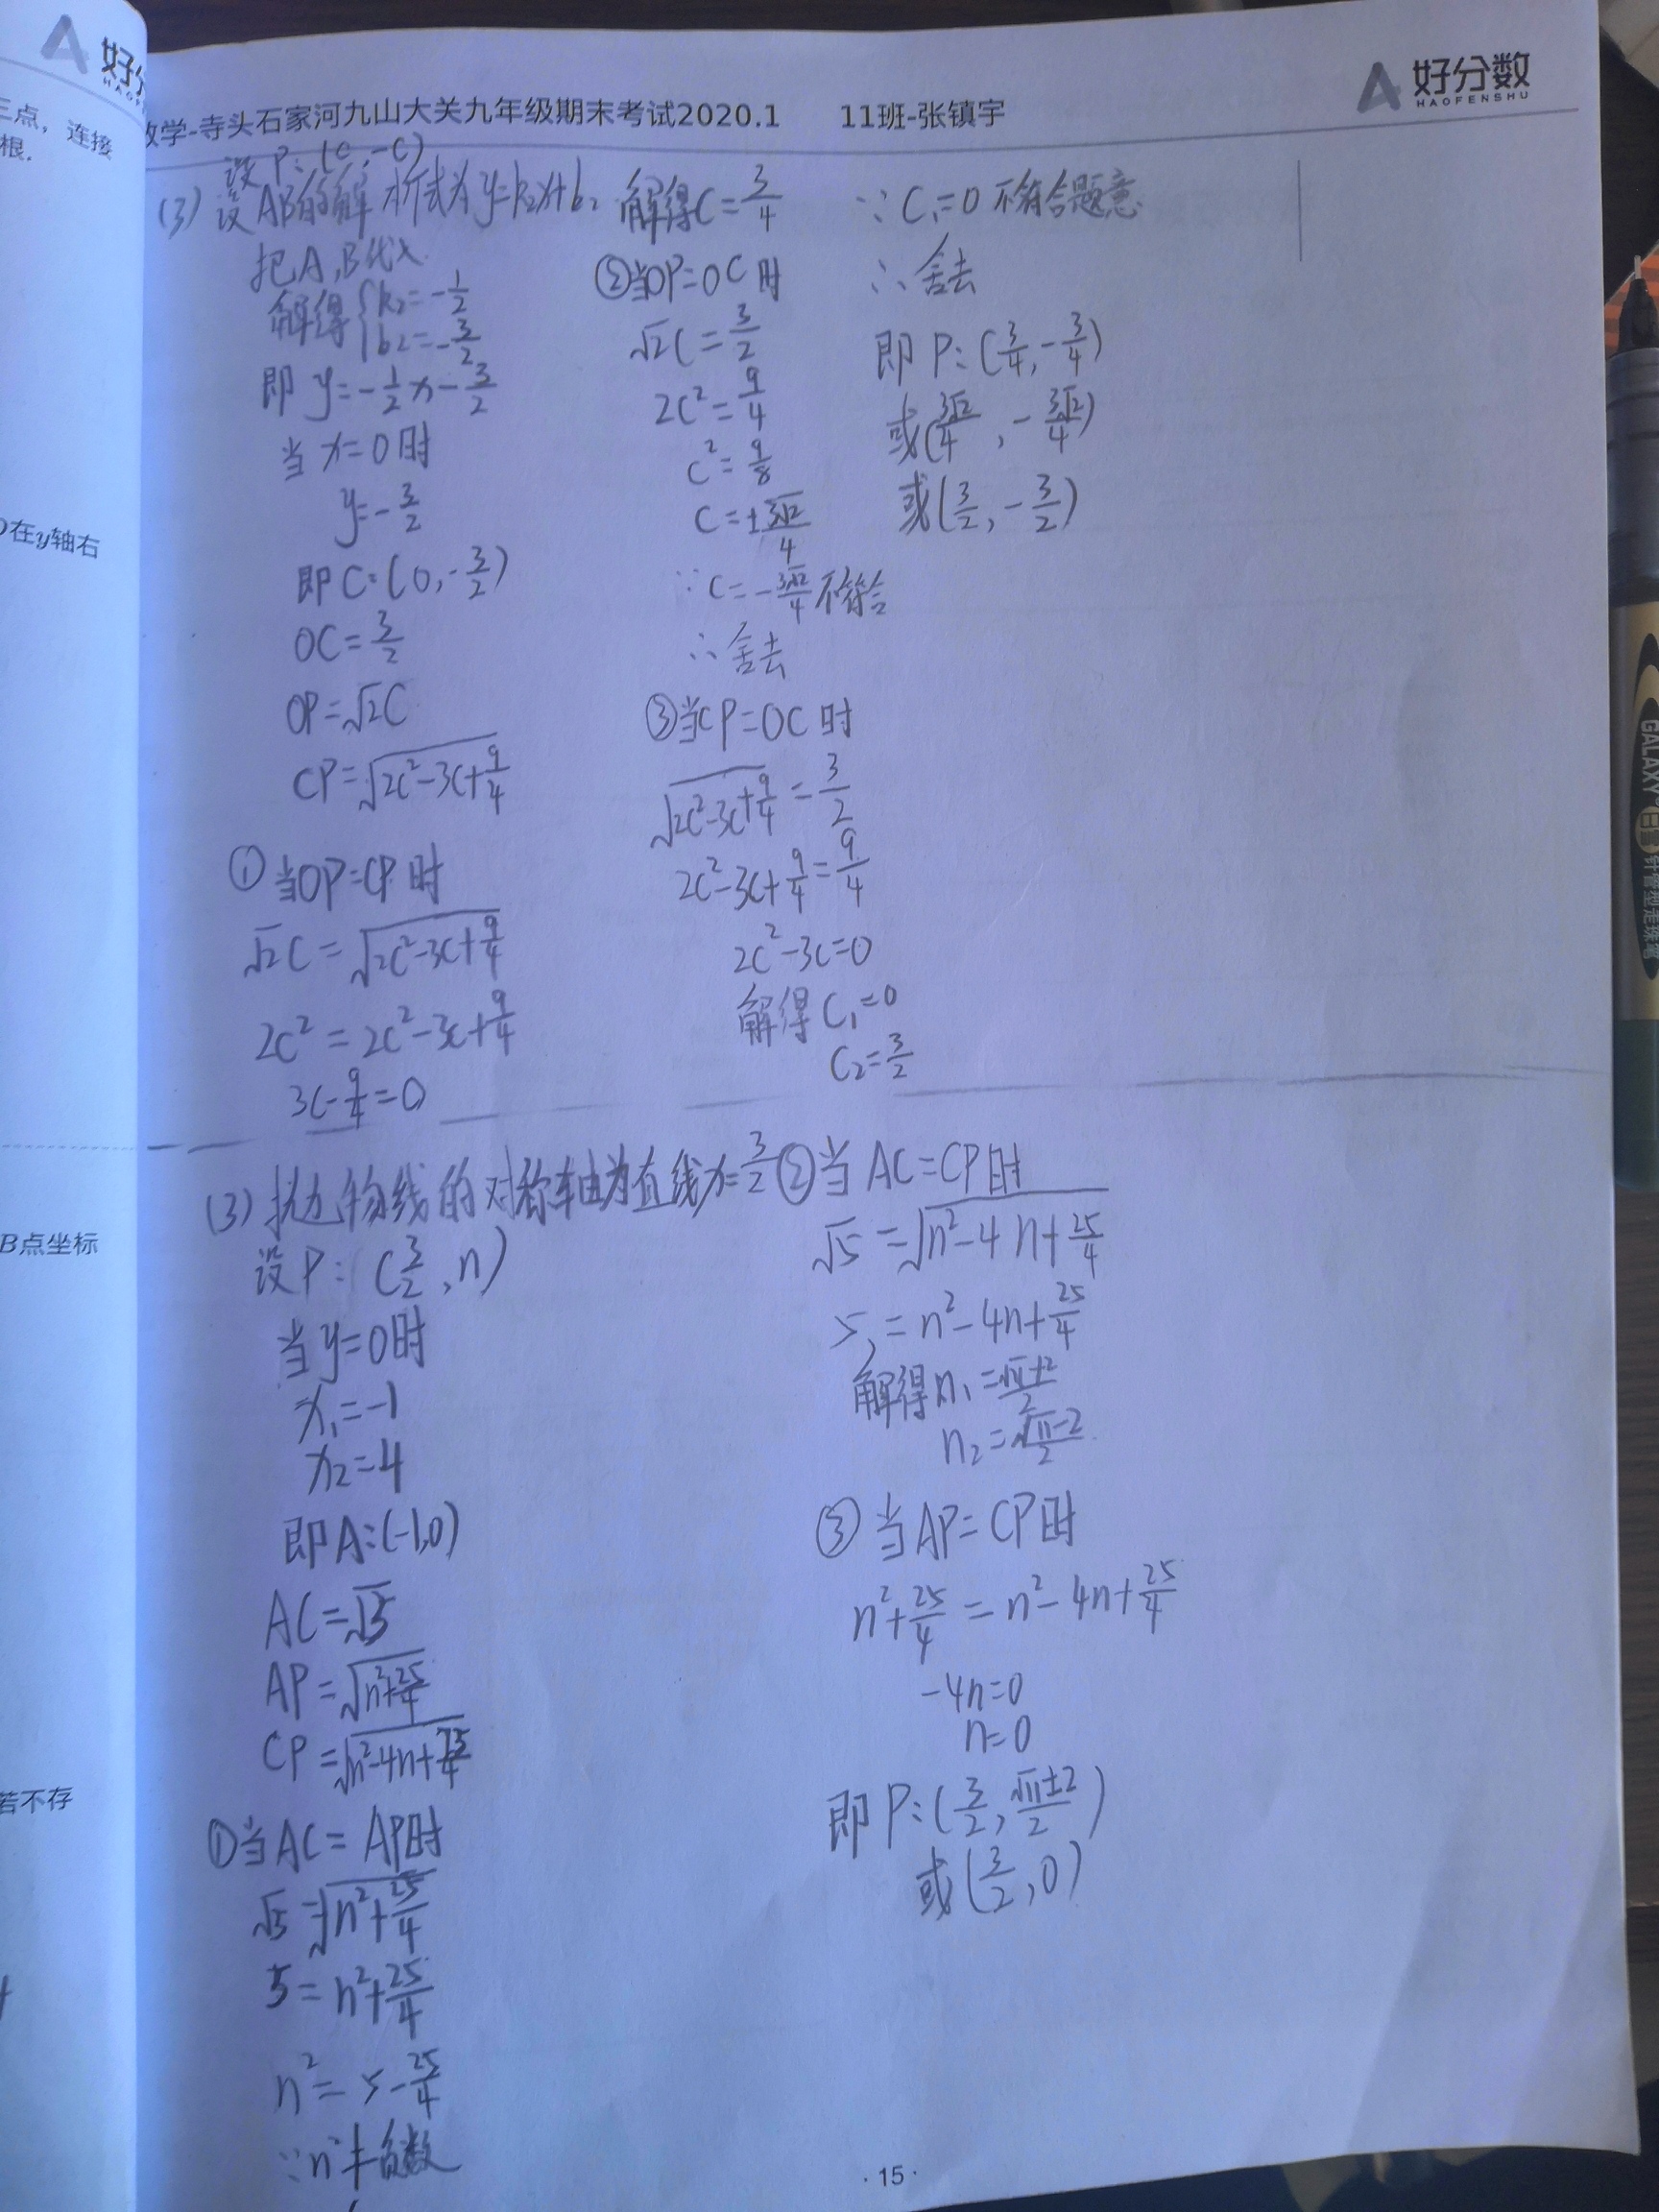 好分
HAOFE
三点，连接
根.
在y轴右
B点坐标
若不存
好分数
HAOFENSHU
数学-寺头石家河九山大关九年级期末考试2020.1 11班-张镇宇
设P:(c,-c)
(3) 设AB的解析式为y=k₂x+b₂
把A,B代入
解得{k₂=-1/2
b₂=-3/2
即y=-1/2x-3/2
当x=0时
y=-3/2
即C:(0,-3/2)
OC=3/2
OP=√2C
CP=√(2c²-3c+9/4)
①当OP=CP时
√2C=√(2c²-3c+9/4)
2c²=2c²-3c+9/4
3c-9/4=0
解得C=3/4
②当OP=OC时
√2C=3/2
2c²=9/4
c²=9/8
C=±3√2/4
∵C=-3√2/4不符合
∴舍去
③当CP=OC时
√(2c²-3c+9/4)=3/2
2c²-3c+9/4=9/4
2c²-3c=0
解得C₁=0
C₂=3/2
∵C₁=0不符合题意
∴舍去
即P:(3/4,-3/4)
或(3√2/4,-3√2/4)
或(3/2,-3/2)
(3)抛物线的对称轴为直线x=3/2
设P:(3/2,n)
当y=0时
x₁=-1
x₂=4
即A:(-1,0)
AC=√5
AP=√(n²+25/4)
CP=√(n²-4n+25/4)
①当AC=AP时
√5=√(n²+25/4)
5=n²+25/4
n²=5-25/4
∵n²≠负数
②当AC=CP时
√5=√(n²-4n+25/4)
5=n²-4n+25/4
解得n₁=(√11+2)/2
n₂=(√11-2)/2
③当AP=CP时
n²+25/4=n²-4n+25/4
-4n=0
n=0
即P:(3/2,(√11±2)/2)
或(3/2,0)
·15·
GALAXY
日露
针管型走珠笔